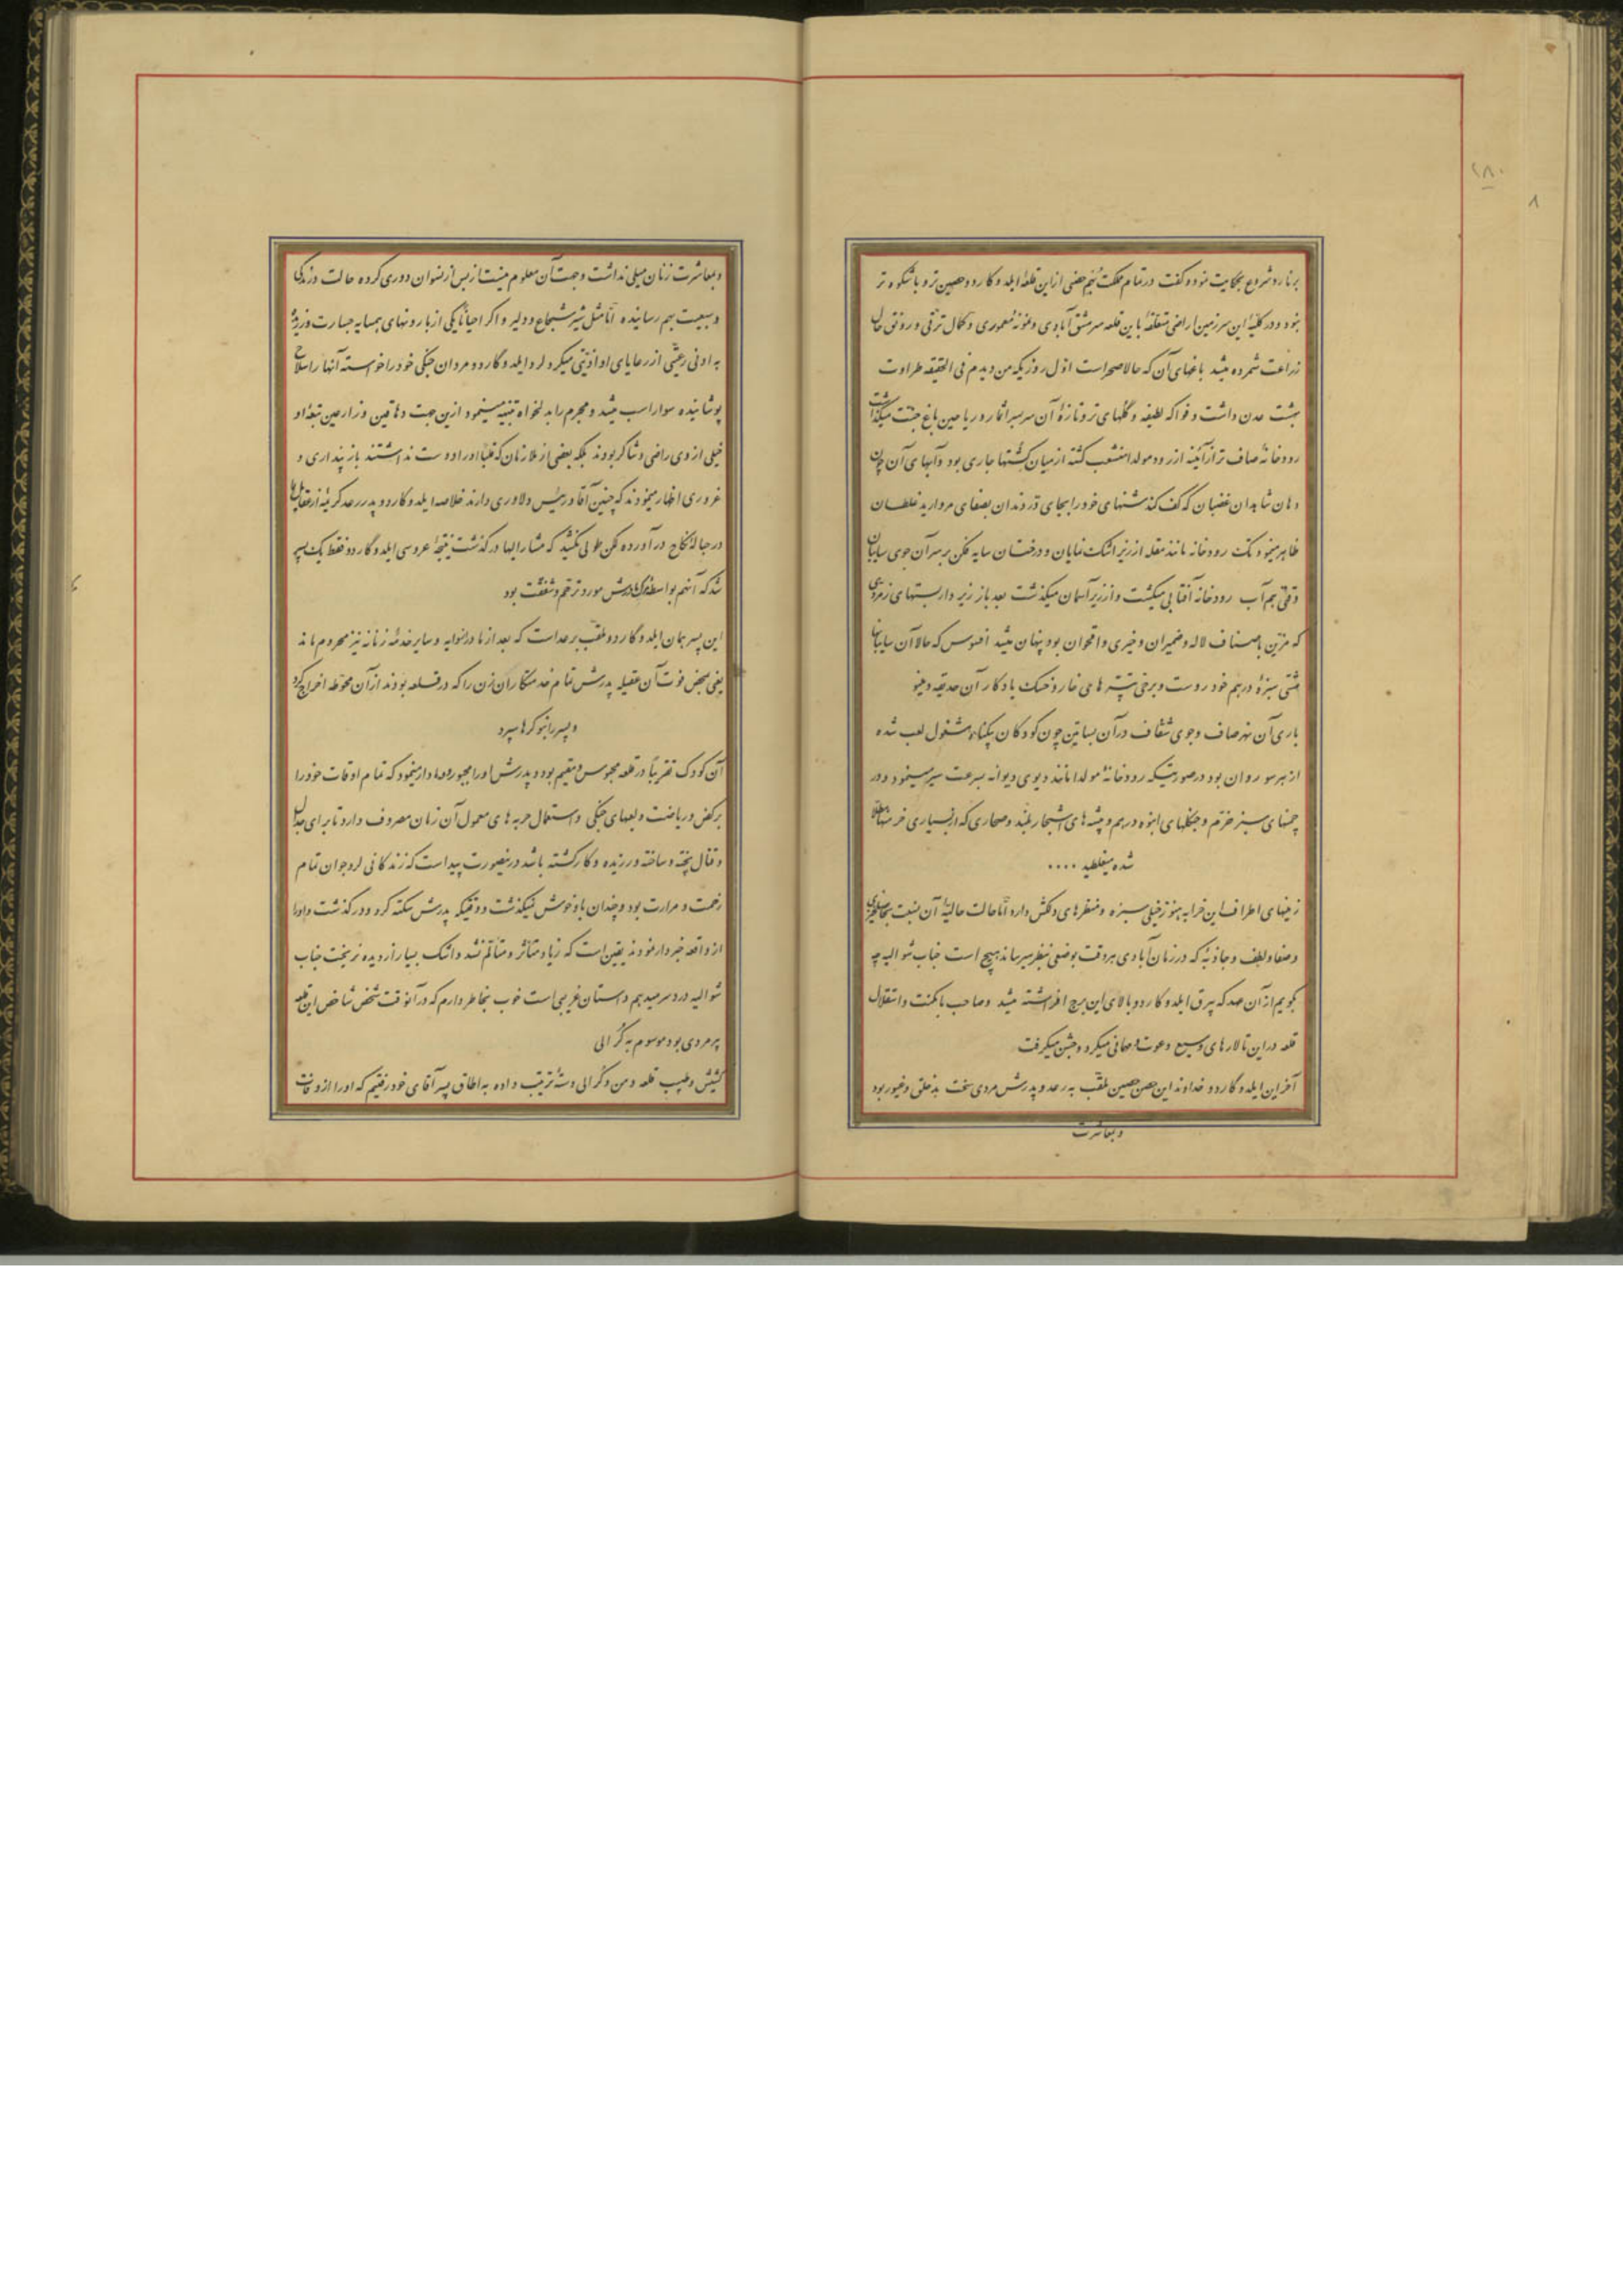 ۲۸۰
۸
برنارد شروع بحکایت نمود و گفت در تمام مملکت نیم حصنی ازین قلعهٔ ایلدوگاردو حصین‌تر و باشکوه‌تر
نبود و در کلیهٔ این سرزمین اراضی متعلقهٔ باین قلعه سرمشق آبادی و نمونهٔ معموری و کمال ترقی و رونق حال
زراعت شمرده میشد باغهای آن که حالا صحراست اول روزیکه من دیدم فی الحقیقه طراوت
بهشت عدن داشت و فواکه لطیفه و گلهای تر و تازهٔ آن سر بسر اثمار و ریاحین باغ جنت میگذاشت
رودخانهٔ صاف‌تر از آئینه از رود مولدا منشعب گشته از میان کشتها جاری بود و آبهای آن چون
دهان شاهدان غضبان که کف کند سنگهای خود را بجای در دندان بصفای مروارید غلطان
ظاهر مینمود تک رودخانه مانند مقله از زیر اشک نمایان و درختان سایه فکن بر سر آن جوی سایبان
وقتی هم آب رودخانه آفتابی میگشت و از زیر آسمان میگذشت بعد باز زیر داربستهای زمردی
که مزین باصناف لاله و ضمیران و خیری و اقحوان بود پنهان میشد افسوس که حالا آن سایبانها
مشتی سبزهٔ درهم خود روست و برخی تپه‌ها می خار و خسک یادگار آن حدیقه و مینو
باری آن نهر صاف و جوی شفاف در آن بساتین چون کودکان بیگناه مشغول لعب شده
از هر سو روان بود در صورتیکه رودخانهٔ مولدا مانند دیوی دیوانه بسرعت سیر مینمود و در
چمنهای سبز خرم و جنگلهای انبوه درهم و بیشه‌های اشجار بلند و صحاری که از بسیاری خرمنها مطلا
شده میغلطید ....
زمینهای اطراف این خرابه هنوز خیلی سبزه و منظرهای دلکش دارد اما حالت حالیهٔ آن نسبت بحاصلخیزی
و صفا و لطف و جاذبهٔ که در زمان آبادی هر وقت بوضعی بنظر میرساند هیچ است جناب شوالیه چه
بگویم از آن عهد که بیرق ایلدوگاردو بالای این برج افراشته میشد و صاحب با مکنت و استقلال
قلعه در این تالارهای وسیع دعوت و مهمانی میکرد و جشن میگرفت
آخرین ایلدوگاردو خداوند این حصن حصین ملقب به رعد و پدرش مردی سخت بد خلق و غیور بود
و بمعاشرت
و بمعاشرت زنان میلی نداشت و جهت آن معلوم نیست از بس از نسوان دوری کرده حالت درندگی
و سبعیت بهم رسانیده اما مثل شیر شجاع و دلیر و اگر احیاناً یکی از بارونهای همسایه جسارت ورزیده
به ادنی رعیتی از رعایای او اذیتی میکرد لرد ایلدوگاردو مردان جنگی خود را خواسته آنها را سلاح
پوشانیده سوار اسب میشد و مجرم را بدلخواه تنبیه مینمود ازین جهت دهاقین و زارعین تبعهٔ او
خیلی از وی راضی و شاکر بودند بلکه بعضی از ملازمان که قلباً او را دوست نداشتند باز پنداری و
غروری اظهار مینمودند که چنین آقا و رئیس دلاوری دارند خلاصه ایلدوگاردو پدر رعد کریمهٔ از عقایل را
در حبالهٔ نکاح درآورده لکن طولی نکشید که مشارالیها درگذشت نتیجهٔ عروسی ایلدوگاردو فقط یک پسر
شد که آنهم بواسطهٔ مرگ مادرش مورد ترحم و شفقت بود
این پسر همان ایلدوگاردو ملقب برعد است که بعد از مادر از دایه و سایر خدمهٔ زنانه نیز محروم ماند
یعنی بمحض فوت آن عقیله پدرش تمام خدمتکاران زن را که در قلعه بودند از آن محوطه اخراج کرد
و پسر را بنوکرها سپرد
آن کودک تقریباً در قلعه محبوس و مقیم بود و پدرش او را مجبور و وادار مینمود که تمام اوقات خود را
برکض و ریاضت و لعبهای جنگی و استعمال حربه‌های معمول آن زمان مصروف دارد تا برای جدال
و قتال پخته و ساخته و ورزیده و کار کشته باشد درینصورت پیداست که زندگانی لرد جوان تمام
زحمت و مرارت بود و چندان باو خوش نمیگذشت و وقتیکه پدرش سکته کرد و درگذشت و او را
از واقعه خبردار نمودند یقین است که زیاد متأثر و متألم نشد و اشک بسیار از دیده نریخت جناب
شوالیه دردسر میدهم داستان غریبی است خوب بخاطر دارم که در آنوقت شخص شاخص این قلعه
پیرمردی بود موسوم به گرالی
کشیش و طبیب قلعه و من و گرالی دستهٔ ترتیب داده به اطاق پسر آقای خود رفتیم که او را از وفات